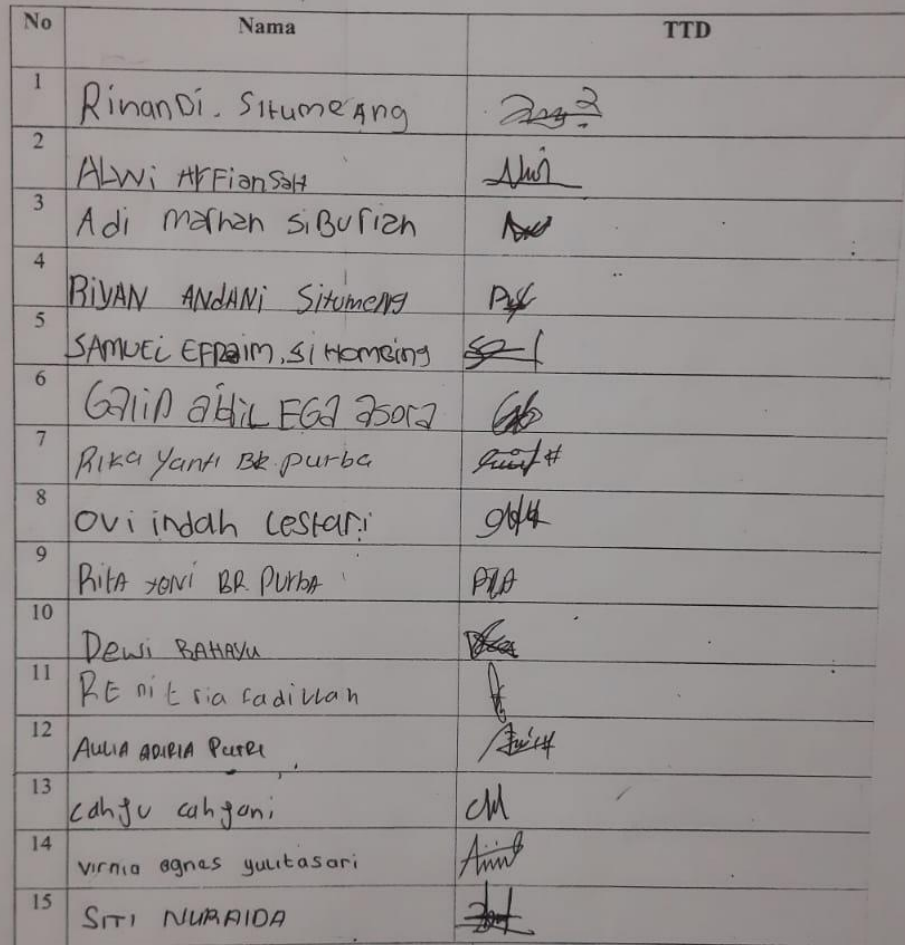 No Nama TTD
1 RinanDi. SitumeAng
2 ALWi AfFianSaH
3 Adi marhan siBurian
4 RiYAN ANdANi Situmeng
5 SAMUEL EFraim, Si Hombing
6 Galip abil EGa asora
7 Rika Yanti BR. purba
8 ovi indah lestari
9 RitA yoni BR PurbA
10 Dewi RAHAYU
11 RE nit ria fadillah
12 AULIA ADIRIA PUTRI
13 cahyu cahyani
14 virnia agnes yulitasari
15 SITI NURAIDA